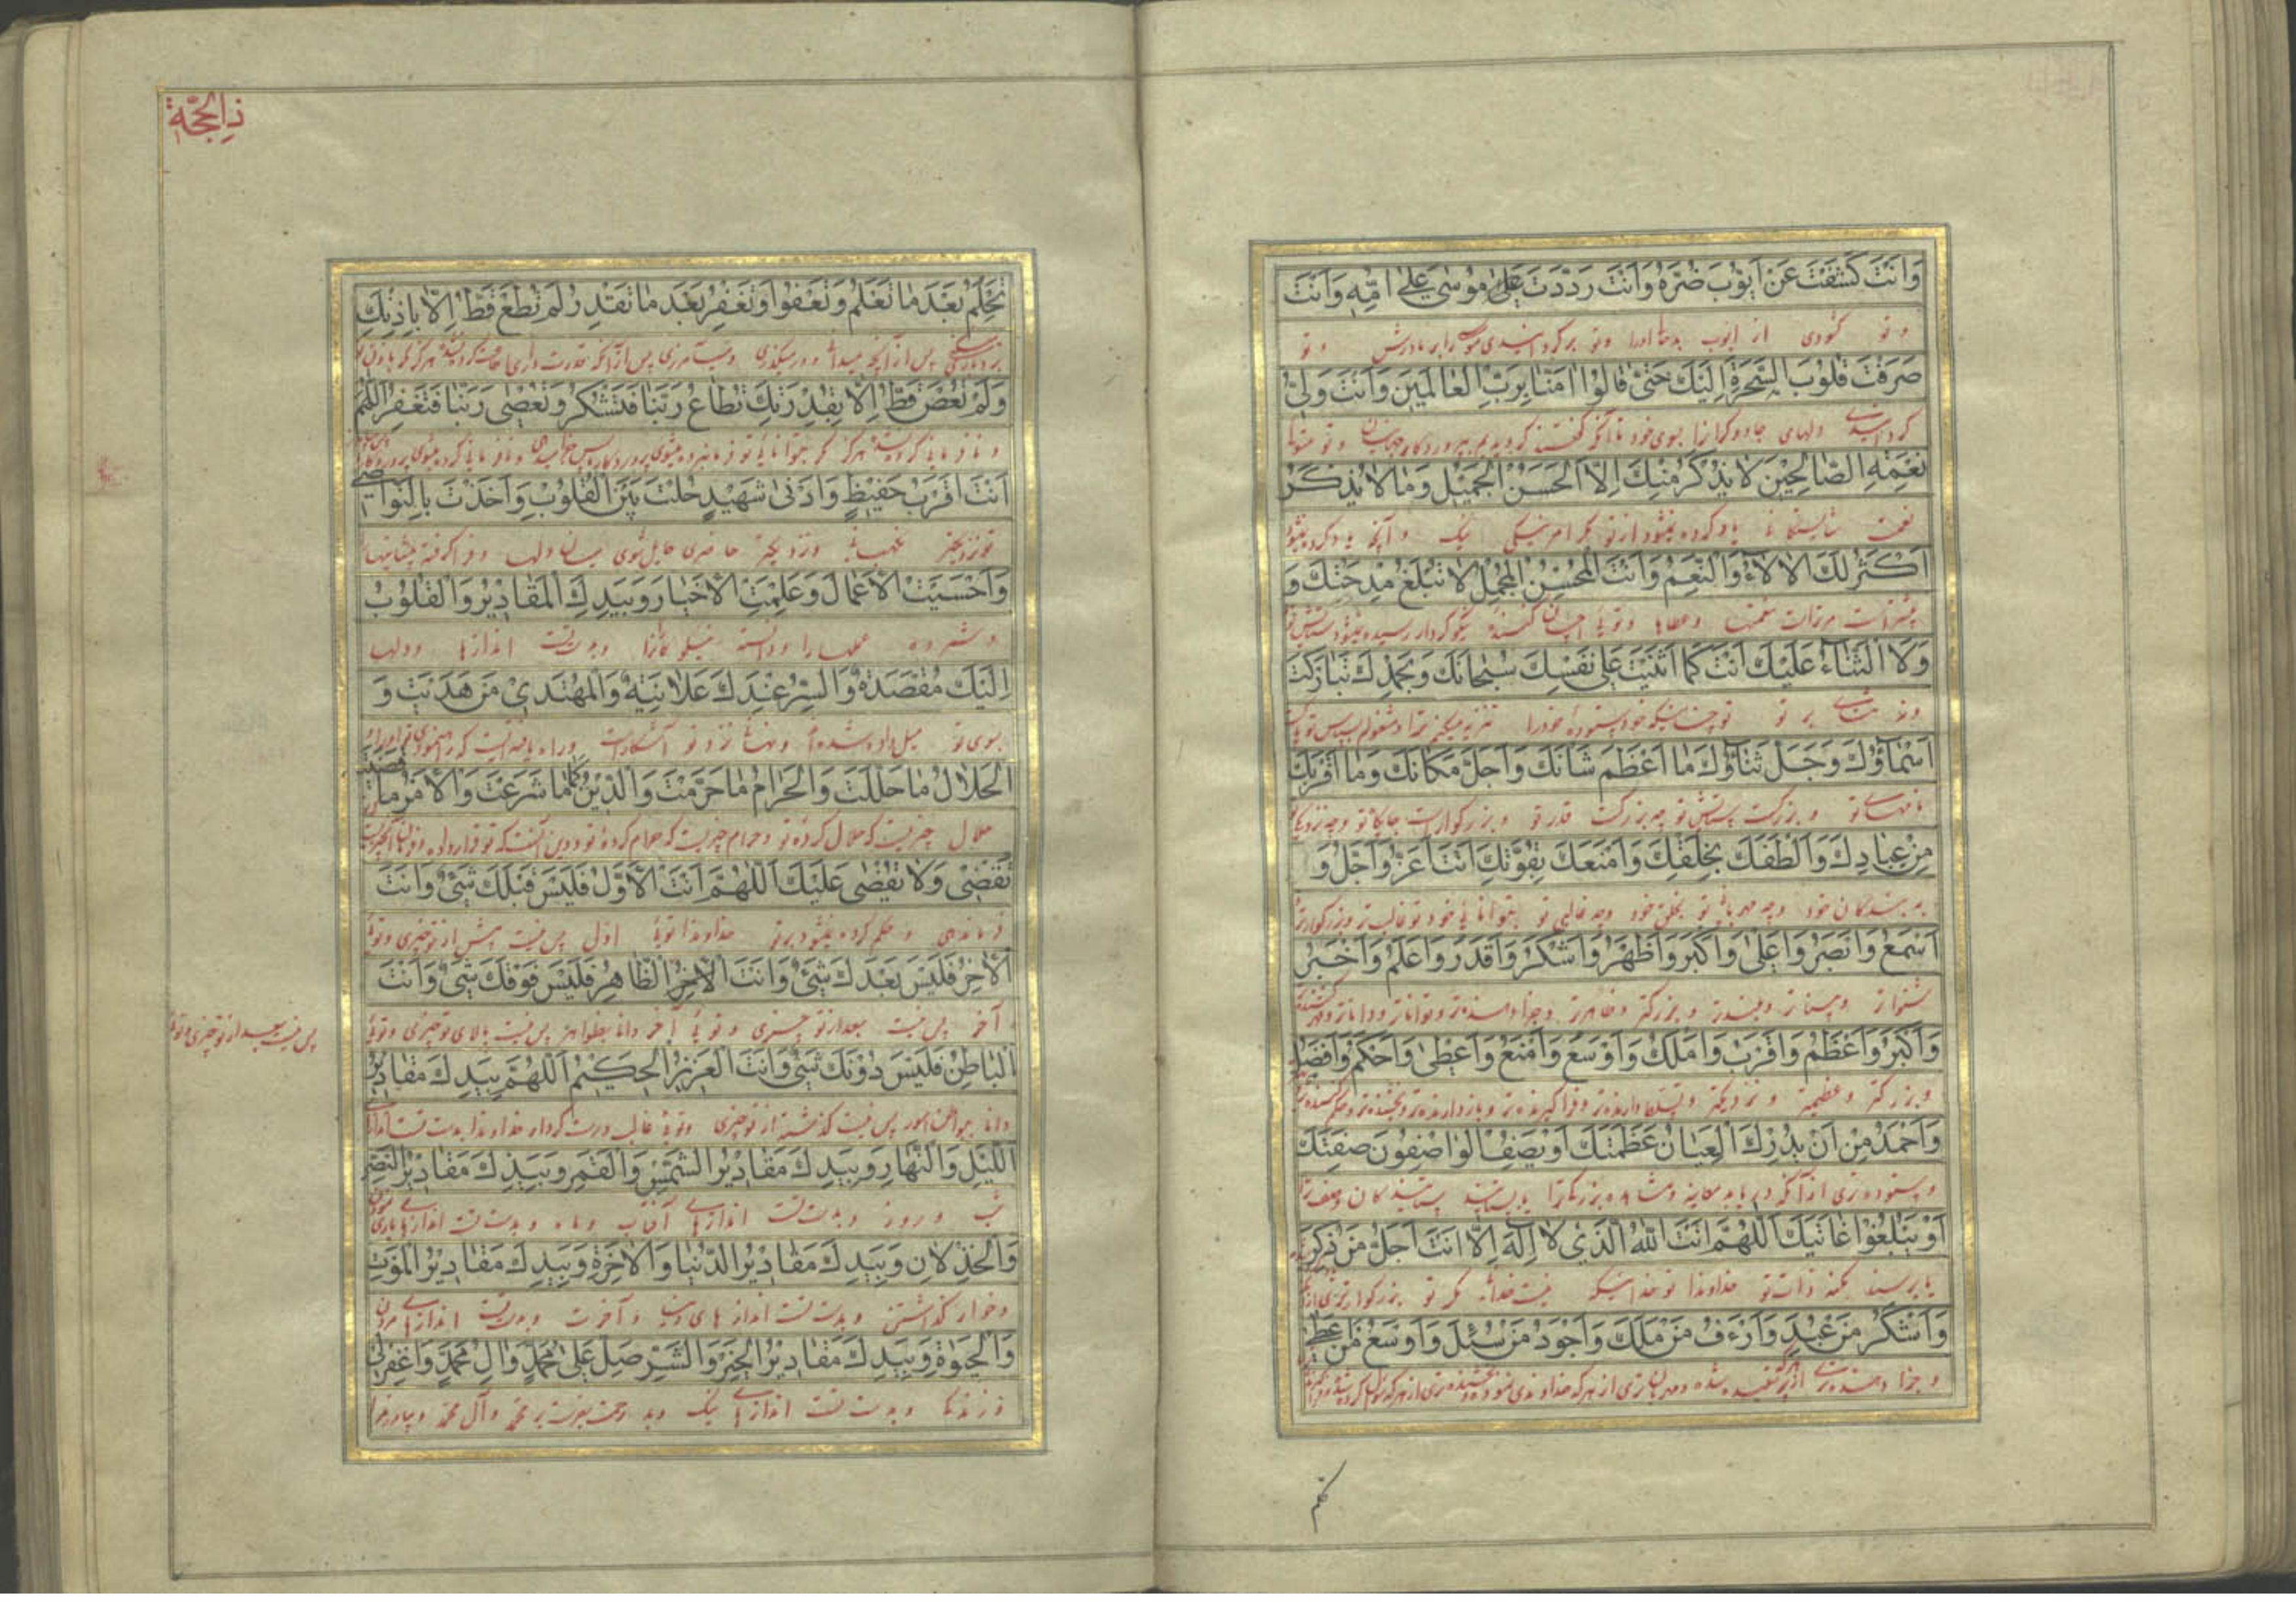 وَاَنْتَ كَشَفْتَ عَنْ اَيُّوبَ ضُرَّهُ وَاَنْتَ رَدَدْتَ عَلىٰ مُوسٰى عَلىٰ اُمِّهِ وَاَنْتَ
و تو کشودی از ایوب بدحالی او را و تو برگردانیدی موسی را بر مادرش و تو
صَرَفْتَ قُلُوبَ السَّحَرَةِ اِلَيْكَ حَتّىٰ قٰالُوا اٰمَنّٰا بِرَبِّ الْعٰالَمِينَ وَاَنْتَ وَلِيُّ
گردانیدی دلهای جادوگران را بسوی خود تا آنکه گفتند گرویدیم بپروردگار جهانیان و تو
نِعْمَةِ الصّٰالِحِينَ لاٰ يُذْكَرُ مِنْكَ اِلاَّ الْحَسَنُ الْجَمِيلُ وَمٰا لاٰ يُذْكَرُ
نعمت شایستگانی یاد کرده نمیشود از تو مگر امر نیکی نیک و آنچه یاد کرده نمیشود
اَكْثَرُ لَكَ الْاٰلاٰءُ وَالنِّعَمُ وَاَنْتَ الْمُحْسِنُ الْمُجْمِلُ لاٰ تُبْلَغُ مِدْحَتُكَ وَ
بیشتر است مرتراست نعمتها و عطاها و توئی احسان کننده نیکو کردار رسیده نمیشود ستایش تو
وَلاَ الثَّنٰاءُ عَلَيْكَ اَنْتَ كَمٰا اَثْنَيْتَ عَلىٰ نَفْسِكَ سُبْحٰانَكَ وَبِحَمْدِكَ تَبٰارَكَتْ
ونه ثنای بر تو تو چنانی که خود ستوده خود را تنزیه میکنم ترا و مشغولم بسپاس تو
اَسْمٰاؤُكَ وَجَلَّ ثَنٰاؤُكَ مٰا اَعْظَمَ شَانَكَ وَاَجَلَّ مَكٰانَكَ وَمٰا اَقْرَبَكَ
نامهای تو و بزرگست ستایش تو چه بزرگست قدر تو و بزرگوارست جایگاه تو و چه نزدیکی
مِنْ عِبٰادِكَ وَاَلْطَفَكَ بِخَلْقِكَ وَاَمْنَعَكَ بِقُوَّتِكَ اَنْتَ اَعَزُّ وَاَجَلُّ وَ
به بندگان خود و چه مهربانی تو بخلق خود و چه غالبی تو بتوانائی خود تو غالب تر و بزرگوارتر
اَسْمَعُ وَاَبْصَرُ وَاَعْلىٰ وَاَكْبَرُ وَاَظْهَرُ وَاَشْكَرُ وَاَقْدَرُ وَاَعْلَمُ وَاَخْبَرُ
شنواتر و بیناتر و بلندتر و بزرگتر و ظاهرتر و جزا دهنده تر و تواناتر و داناتر و
وَاَكْبَرُ وَاَعْظَمُ وَاَقْرَبُ وَاَمْلَكُ وَاَوْسَعُ وَاَمْنَعُ وَاَعْطىٰ وَاَحْكَمُ وَاَفْضَلُ
و بزرگتر و عظیمتر و نزدیکتر
وَاَحْمَدُ مِنْ اَنْ يُدْرِكَ الْعِيٰانُ عَظَمَتَكَ اَوْ يَصِفُ الْوٰاصِفُونَ صِفَتَكَ
و ستوده تری از آنکه دریابد معاینه و مشاهده بزرگی ترا یا بستایند ستایندگان وصف ترا
اَوْ يَبْلُغُوا غٰايَتَكَ اَللّٰهُمَّ اَنْتَ اللّٰهُ الَّذِي لاٰ اِلٰهَ اِلاّٰ اَنْتَ اَجَلُّ مَنْ ذُكِرَ
یا برسند بکنه ذات تو خداوندا تو خدائیکه نیست خدائی مگر تو بزرگوارتری از
وَاَشْكَرُ مَنْ عُبِدَ وَاَرْءَفُ مَنْ مَلَكَ وَاَجْوَدُ مَنْ سُئِلَ وَاَوْسَعُ مَنْ اَعْطىٰ
ذِالحِجَّة
تَحْلَمُ بَعْدَ مٰا تَعْلَمُ وَتَعْفُوا وَتَغْفِرُ بَعْدَ مٰا تَقْدِرُ لَمْ تُطَعْ قَطُّ اِلاّٰ بِاِذْنِكَ
وَلَمْ تُعْصَ قَطُّ اِلاّٰ بِقُدْرَتِكَ تُطٰاعُ رَبَّنٰا فَتَشْكُرُ وَتُعْصٰى رَبَّنٰا فَتَغْفِرُ اَللّٰهُمَّ
اَنْتَ اَقْرَبُ حَفِيظٍ وَاَدْنىٰ شَهِيدٍ حُلْتَ بَيْنَ الْقُلُوبِ وَاَخَذْتَ بِالنَّوٰاصِي
تو نزدیکتر نگهبانی و نزدیکتر حاضری حایل شوی میان دلها و فرا گرفته پیشانیها
وَاَحْسَيْتَ الْاَعْمٰالَ وَعَلِمْتَ الْاَخْبٰارَ وَبِيَدِكَ الْمَقٰادِيرُ وَالْقُلُوبُ
و شمرده عملها را و دانسته و بدست تست اندازها و دلها
اِلَيْكَ مُقْصَدَةٌ وَالسِّرُّ عِنْدَكَ عَلاٰنِيَةٌ وَالْمُهْتَدِي مَنْ هَدَيْتَ وَ
بسوی تو میل داده شده و نهانی نزد تو آشکار است و راه یافته آنست که
الْحَلاٰلُ مٰا حَلَّلْتَ وَالْحَرٰامُ مٰا حَرَّمْتَ وَالدِّينُ كَمٰا شَرَعْتَ وَالْاَمْرُ مٰا قَضَيْتَ
حلال چیزیست که حلال کرده تو و حرام چیزیست که حرام کرده تو و دین آنست که تو قرار داده
تَقْضِي وَلاٰ يُقْضٰى عَلَيْكَ اَللّٰهُمَّ اَنْتَ الْاَوَّلُ فَلَيْسَ قَبْلَكَ شَيْءٌ وَاَنْتَ
فرماندهی و حکم کرده نمیشود بر تو خداوندا توئی اول پس نیست پیش از تو چیزی و توئی
الْاٰخِرُ فَلَيْسَ بَعْدَكَ شَيْءٌ وَاَنْتَ الْاٰخِرُ الظّٰاهِرُ فَلَيْسَ فَوْقَكَ شَيْءٌ وَاَنْتَ
آخر پس نیست بعد از تو چیزی و توئی آخر دانا بظواهر پس نیست بالای تو چیزی و توئی
پس نیست بعد از تو چیزی و توئی
الْبٰاطِنُ فَلَيْسَ دُونَكَ شَيْءٌ وَاَنْتَ الْعَزِيزُ الْحَكِيمُ اَللّٰهُمَّ بِيَدِكَ مَقٰادِيرُ
دانا ببواطن امور پس نیست گذشته از تو چیزی و توئی غالب درست کردار خداوندا بدست تست
اللَّيْلِ وَالنَّهٰارِ وَبِيَدِكَ مَقٰادِيرُ الشَّمْسِ وَالْقَمَرِ وَبِيَدِكَ مَقٰادِيرُ النَّصْرِ
شب و روز و بدست تست اندازهای آفتاب و ماه و بدست تست اندازهای
وَالْخِذْلاٰنِ وَبِيَدِكَ مَقٰادِيرُ الدُّنْيٰا وَالْاٰخِرَةِ وَبِيَدِكَ مَقٰادِيرُ الْمَوْتِ
و خوار گذاشتن و بدست تست اندازهای دنیا و آخرت و بدست تست اندازهای مردن
وَالْحَيٰوةِ وَبِيَدِكَ مَقٰادِيرُ الْخَيْرِ وَالشَّرِّ صَلِّ عَلىٰ مُحَمَّدٍ وَاٰلِ مُحَمَّدٍ وَاغْفِرْ لِي
و زندگی و بدست تست اندازهای نیک و بد رحمت بفرست بر محمد و آل محمد و بیامرز مرا